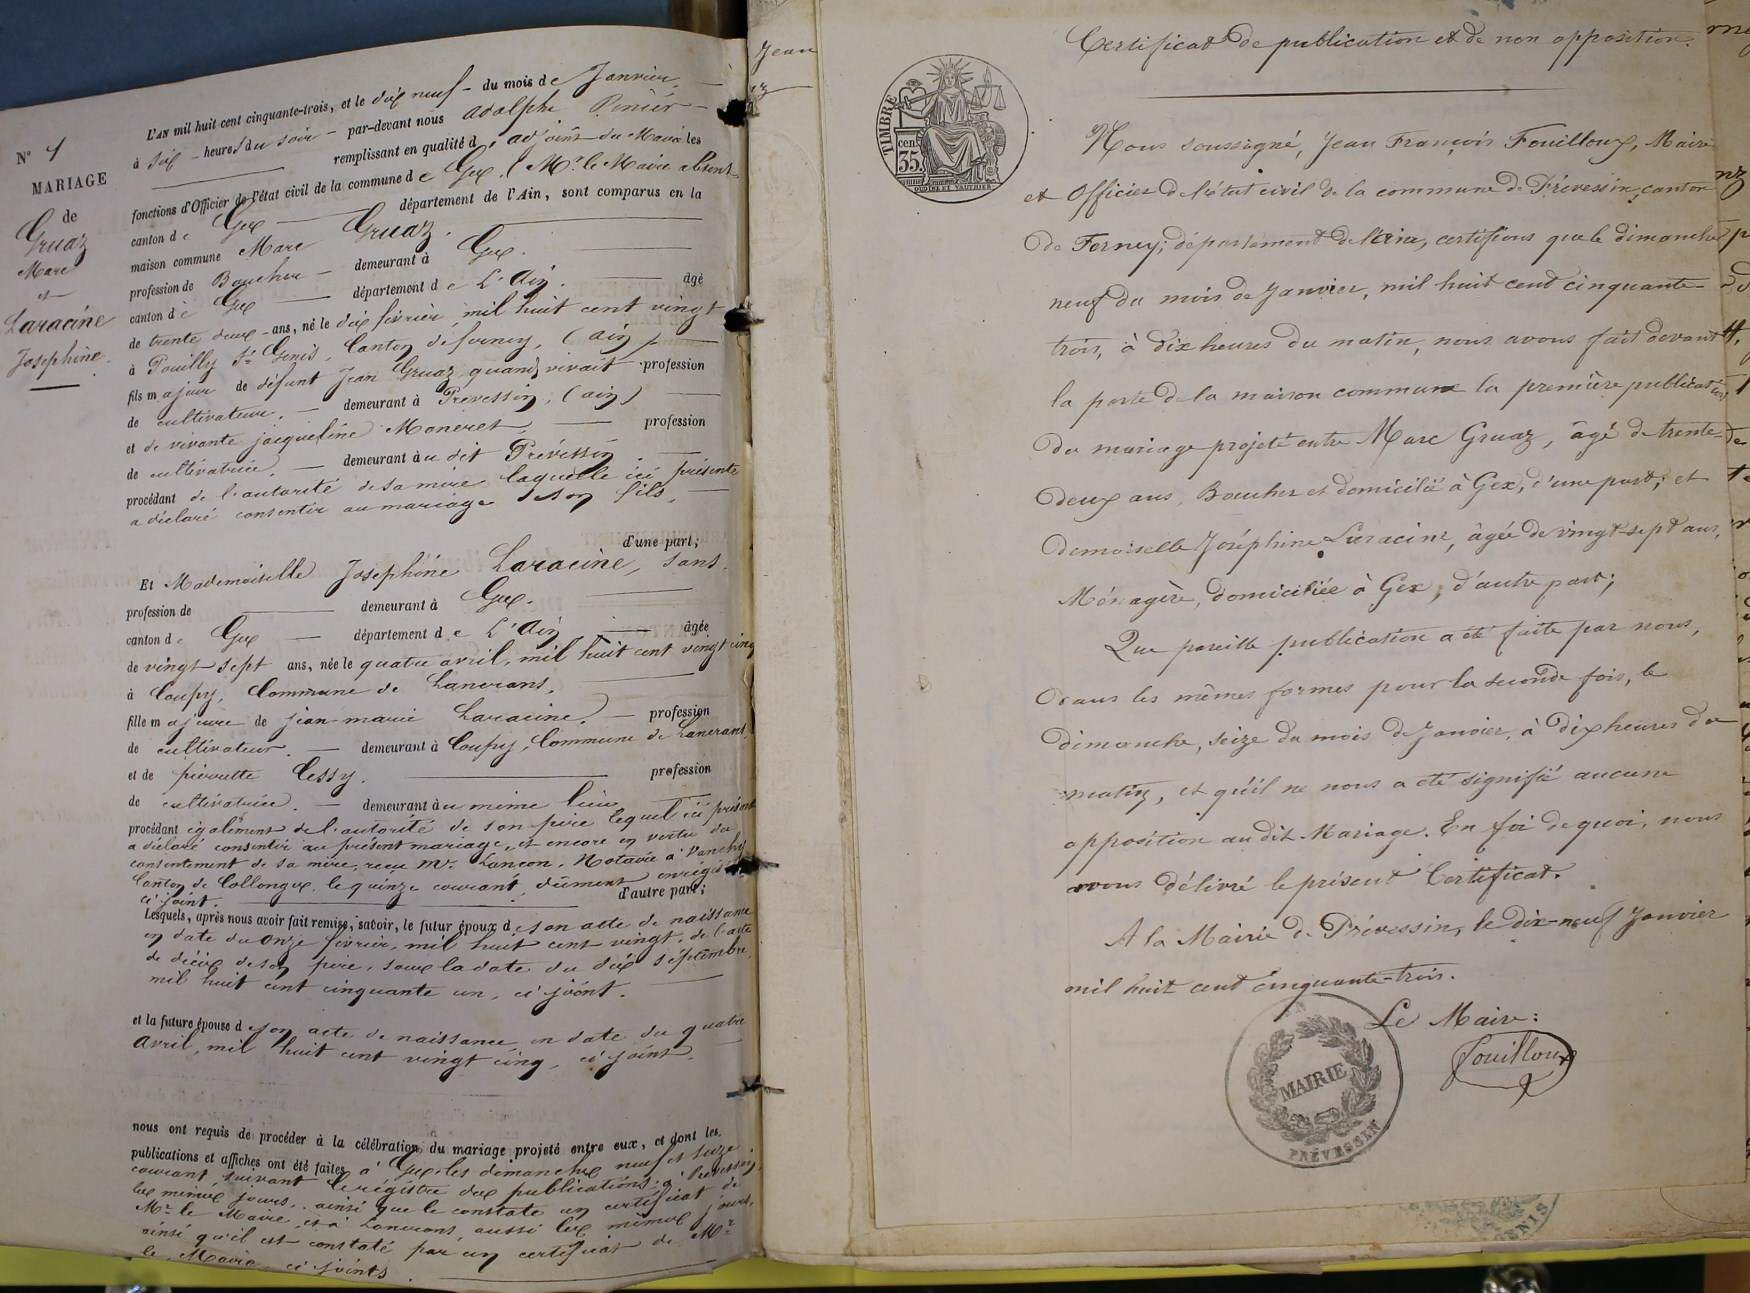 N° 1
MARIAGE
de
Gruaz
Marc
et
Laracine
Josephine.
L'AN mil huit cent cinquante-trois, et le dix neuf - du mois de Janvier,
à six - heures du soir - par-devant nous Adolphe
remplissant en qualité d'adjoint du Maire les
fonctions d'Officier de l'état civil de la commune de Gex. (Mr. le Maire absent
canton de Gex département de l'Ain, sont comparus en la
maison commune Marc Gruaz.
profession de Boucher - demeurant à Gex.
canton de Gex département de L'Ain. âgé
de trente deux - ans, né le dix février, mil huit cent vingt
à Pouilly St Genis, Canton de ferney, (ain)
fils majeur de défunt Jean Gruaz, quand vivait profession
de cultivateur. - demeurant à Prévessin, (ain)
et de vivante jacqueline Moneret, profession
de cultivatrice. - demeurant au dit Prévessin.
procédant de l'autorité de sa mère laquelle ici présente
a déclaré consentir au mariage de son fils.
d'une part;
Et Mademoiselle Josephine Laracine, sans
profession de demeurant à Gex.
canton de Gex - département de L'Ain âgée
de vingt sept ans, née le quatre avril, mil huit cent vingt cinq
à Coupy, Commune de Lancrans,
fille majeure de jean-marie Laracine. - profession
de cultivateur. - demeurant à Coupy, Commune de Lancrans,
et de pierrette Cessy. profession
de cultivatrice. - demeurant au même lieu
procédant également de l'autorité de son père lequel ici présent
a déclaré consentir au présent mariage, et encore en vertu du
consentement de sa mère, reçu Mr. Lançon, Notaire à Vanchy
Canton de Collonges, le quinze courant, dûment enrégistré
ci joint. d'autre part;
Lesquels, après nous avoir fait remise, savoir, le futur époux de son acte de naissance
en date du onze février, mil huit cent vingt, de l'acte
de décès de son père, sous la date du dix septembre,
mil huit cent cinquante un, ci joint.
et la future épouse de son acte de naissance en date du quatre
avril, mil huit cent vingt cinq, ci joint.
nous ont requis de procéder à la célébration du mariage projeté entre eux, et dont les
publications et affiches ont été faites à Gex les dimanches neuf et seize
courant, suivant le régistre des publications; à Prévessin,
les mêmes jours, ainsi que le constate un certificat de
Mr. le Maire, et à Lancrans, aussi les mêmes jours,
ainsi qu'il est constaté par un certificat de Mr.
le Maire, ci joints.
Jean
Certificat de publication et de non opposition.
TIMBRE
35 cen
Nous soussigné, Jean François Fouilloux, Maire
et Officier de l'état civil de la commune de Prévessin, canton
de Ferney, département de l'Ain, certifions que le dimanche
neuf du mois de Janvier, mil huit cent cinquante-
trois, à dix heures du matin, nous avons fait devant
la porte de la maison commune la première publication
du mariage projeté entre Marc Gruaz, âgé de trente-
deux ans, Boucher et domicilié à Gex, d'une part; et
demoiselle Joséphine Laracine, âgée de vingt-sept ans,
Ménagère, domiciliée à Gex, d'autre part;
Que pareille publication a été faite par nous,
dans les mêmes formes pour la seconde fois, le
dimanche, seize du mois de Janvier, à dix heures du
matin, et qu'il ne nous a été signifié aucune
opposition audit Mariage. En foi de quoi, nous
avons délivré le présent Certificat.
A la Mairie de Prévessin, le dix-neuf Janvier
mil huit cent cinquante-trois.
Le Maire:
Fouilloux
MAIRIE
PRÉVESSIN